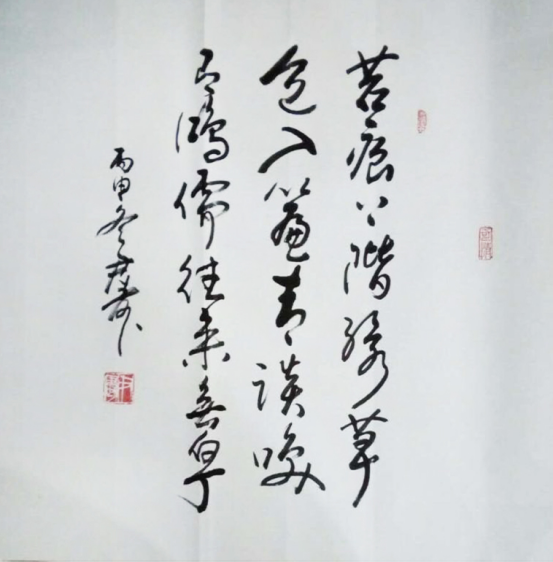 苔痕上階綠草
色入簾青談咲
有鴻儒往來無白丁
丙申冬